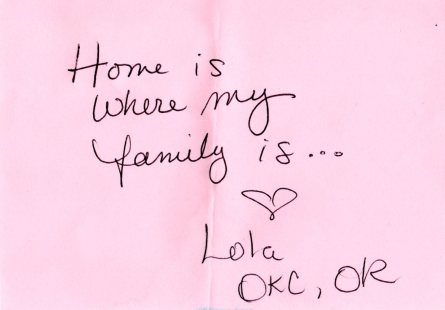 Home is
where my
family is...
Lola
OKC, OK